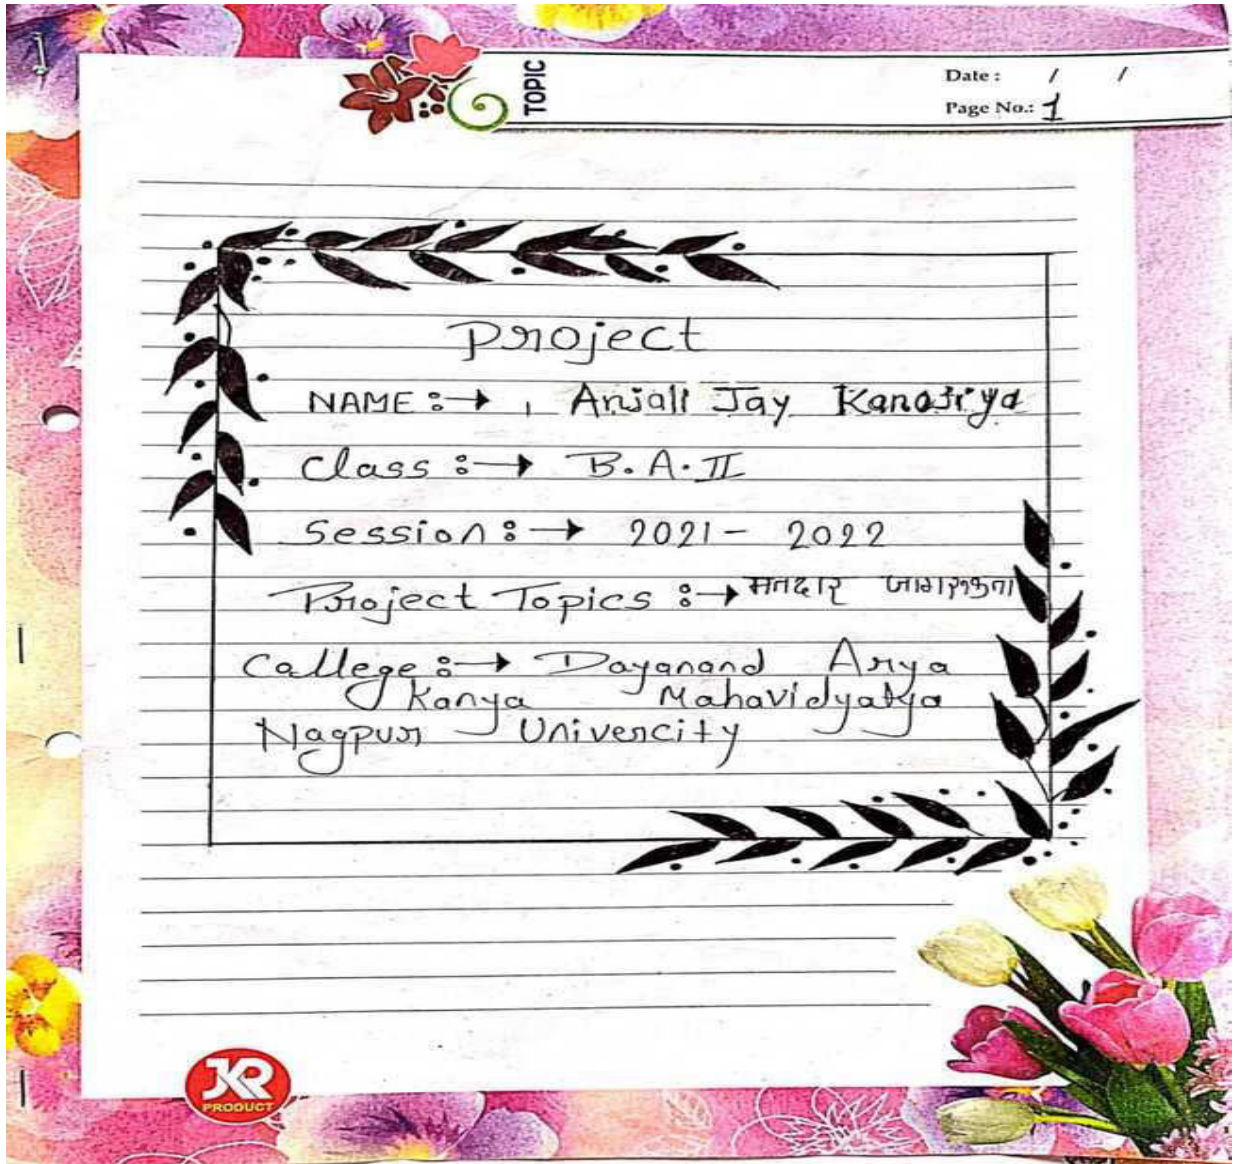 TOPIC
Date : / /
Page No.: 1
Project
NAME :→ Anjali Jay Kanojiya
Class :→ B.A.II
Session :→ 2021- 2022
Project Topics :→ मतदार जागरूकता
Callege :→ Dayanand Arya
Kanya Mahavidyalya
Nagpur Univercity
JKR
PRODUCT